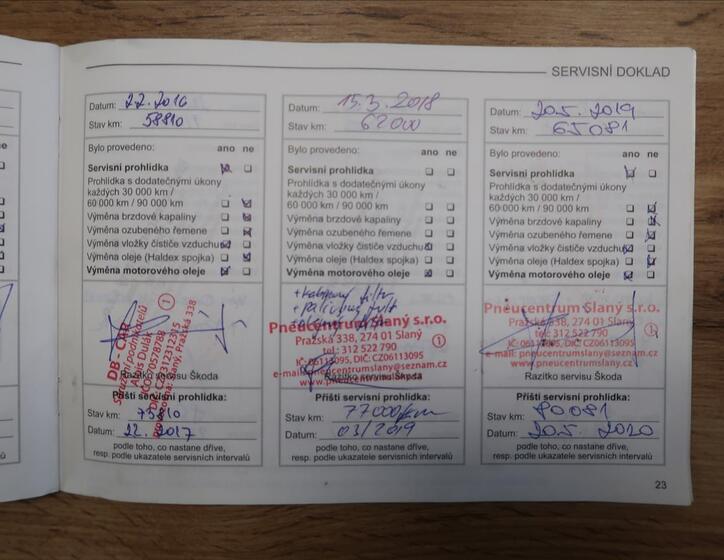 SERVISNÍ DOKLAD
Datum: 22.2016
Stav km: 58810
Bylo provedeno: ano ne
Servisní prohlídka
Prohlídka s dodatečnými úkony
každých 30 000 km /
60 000 km / 90 000 km
Výměna brzdové kapaliny
Výměna ozubeného řemene
Výměna vložky čističe vzduchu
Výměna oleje (Haldex spojka)
Výměna motorového oleje
DB - CAR
Sdružení podnikatelů
Slaný, Pražská 338
1
Razítko servisu Škoda
Příští servisní prohlídka:
Stav km: 75810
Datum: 22. 2017
podle toho, co nastane dříve,
resp. podle ukazatele servisních intervalů
Datum: 15.3.2018
Stav km: 62000
Bylo provedeno: ano ne
Servisní prohlídka
Prohlídka s dodatečnými úkony
každých 30 000 km /
60 000 km / 90 000 km
Výměna brzdové kapaliny
Výměna ozubeného řemene
Výměna vložky čističe vzduchu
Výměna oleje (Haldex spojka)
Výměna motorového oleje
+ kabinový filtr
Pneucentrum Slaný s.r.o.
Pražská 338, 274 01 Slaný
tel.: 312 522 790
IČ: 06113095, DIČ: CZ06113095
e-mail: pneucentrumslany@seznam.cz
www.pneucentrumslany.cz
1
Razítko servisu Škoda
Příští servisní prohlídka:
Stav km: 77000/km
Datum: 03/2019
podle toho, co nastane dříve,
resp. podle ukazatele servisních intervalů
Datum: 20.5. 2019
Stav km: 65081
Bylo provedeno: ano ne
Servisní prohlídka
Prohlídka s dodatečnými úkony
každých 30 000 km /
60 000 km / 90 000 km
Výměna brzdové kapaliny
Výměna ozubeného řemene
Výměna vložky čističe vzduchu
Výměna oleje (Haldex spojka)
Výměna motorového oleje
Pneucentrum Slaný s.r.o.
Pražská 338, 274 01 Slaný
tel.: 312 522 790
IČ: 06113095, DIČ: CZ06113095
e-mail: pneucentrumslany@seznam.cz
www.pneucentrumslany.cz
1
Razítko servisu Škoda
Příští servisní prohlídka:
Stav km: 80081
Datum: 20.5. 2020
podle toho, co nastane dříve,
resp. podle ukazatele servisních intervalů
23